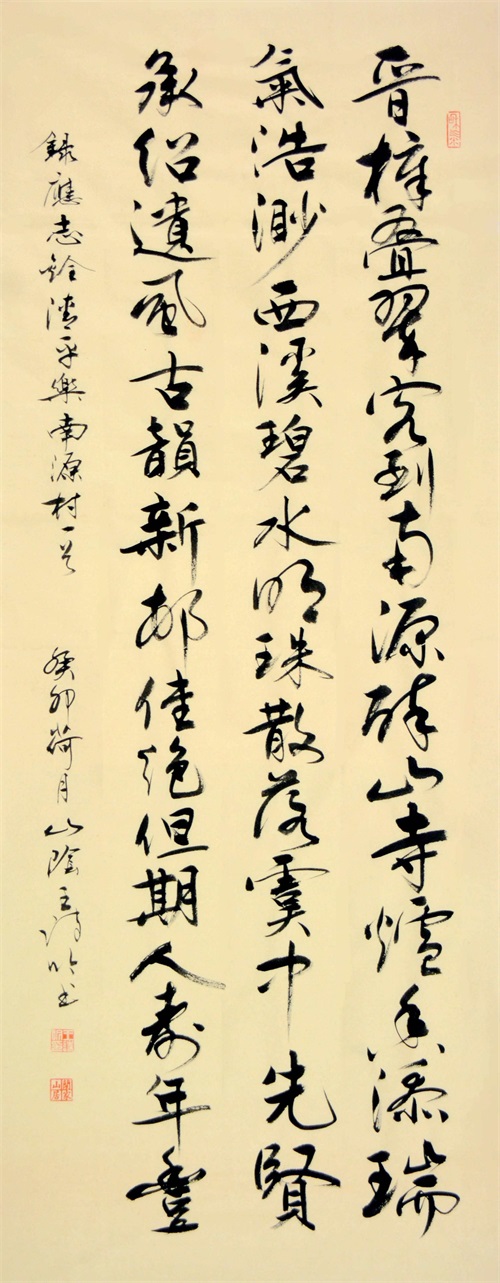 晉樟叠翠客到南源醉山寺爐香添瑞
氣浩渺西溪碧水明珠散落虞中先賢
承紹遺風古韻新邨佳絕但期人壽年豐
錄應志銓清平樂南源村一首
癸卯荷月山陰王書